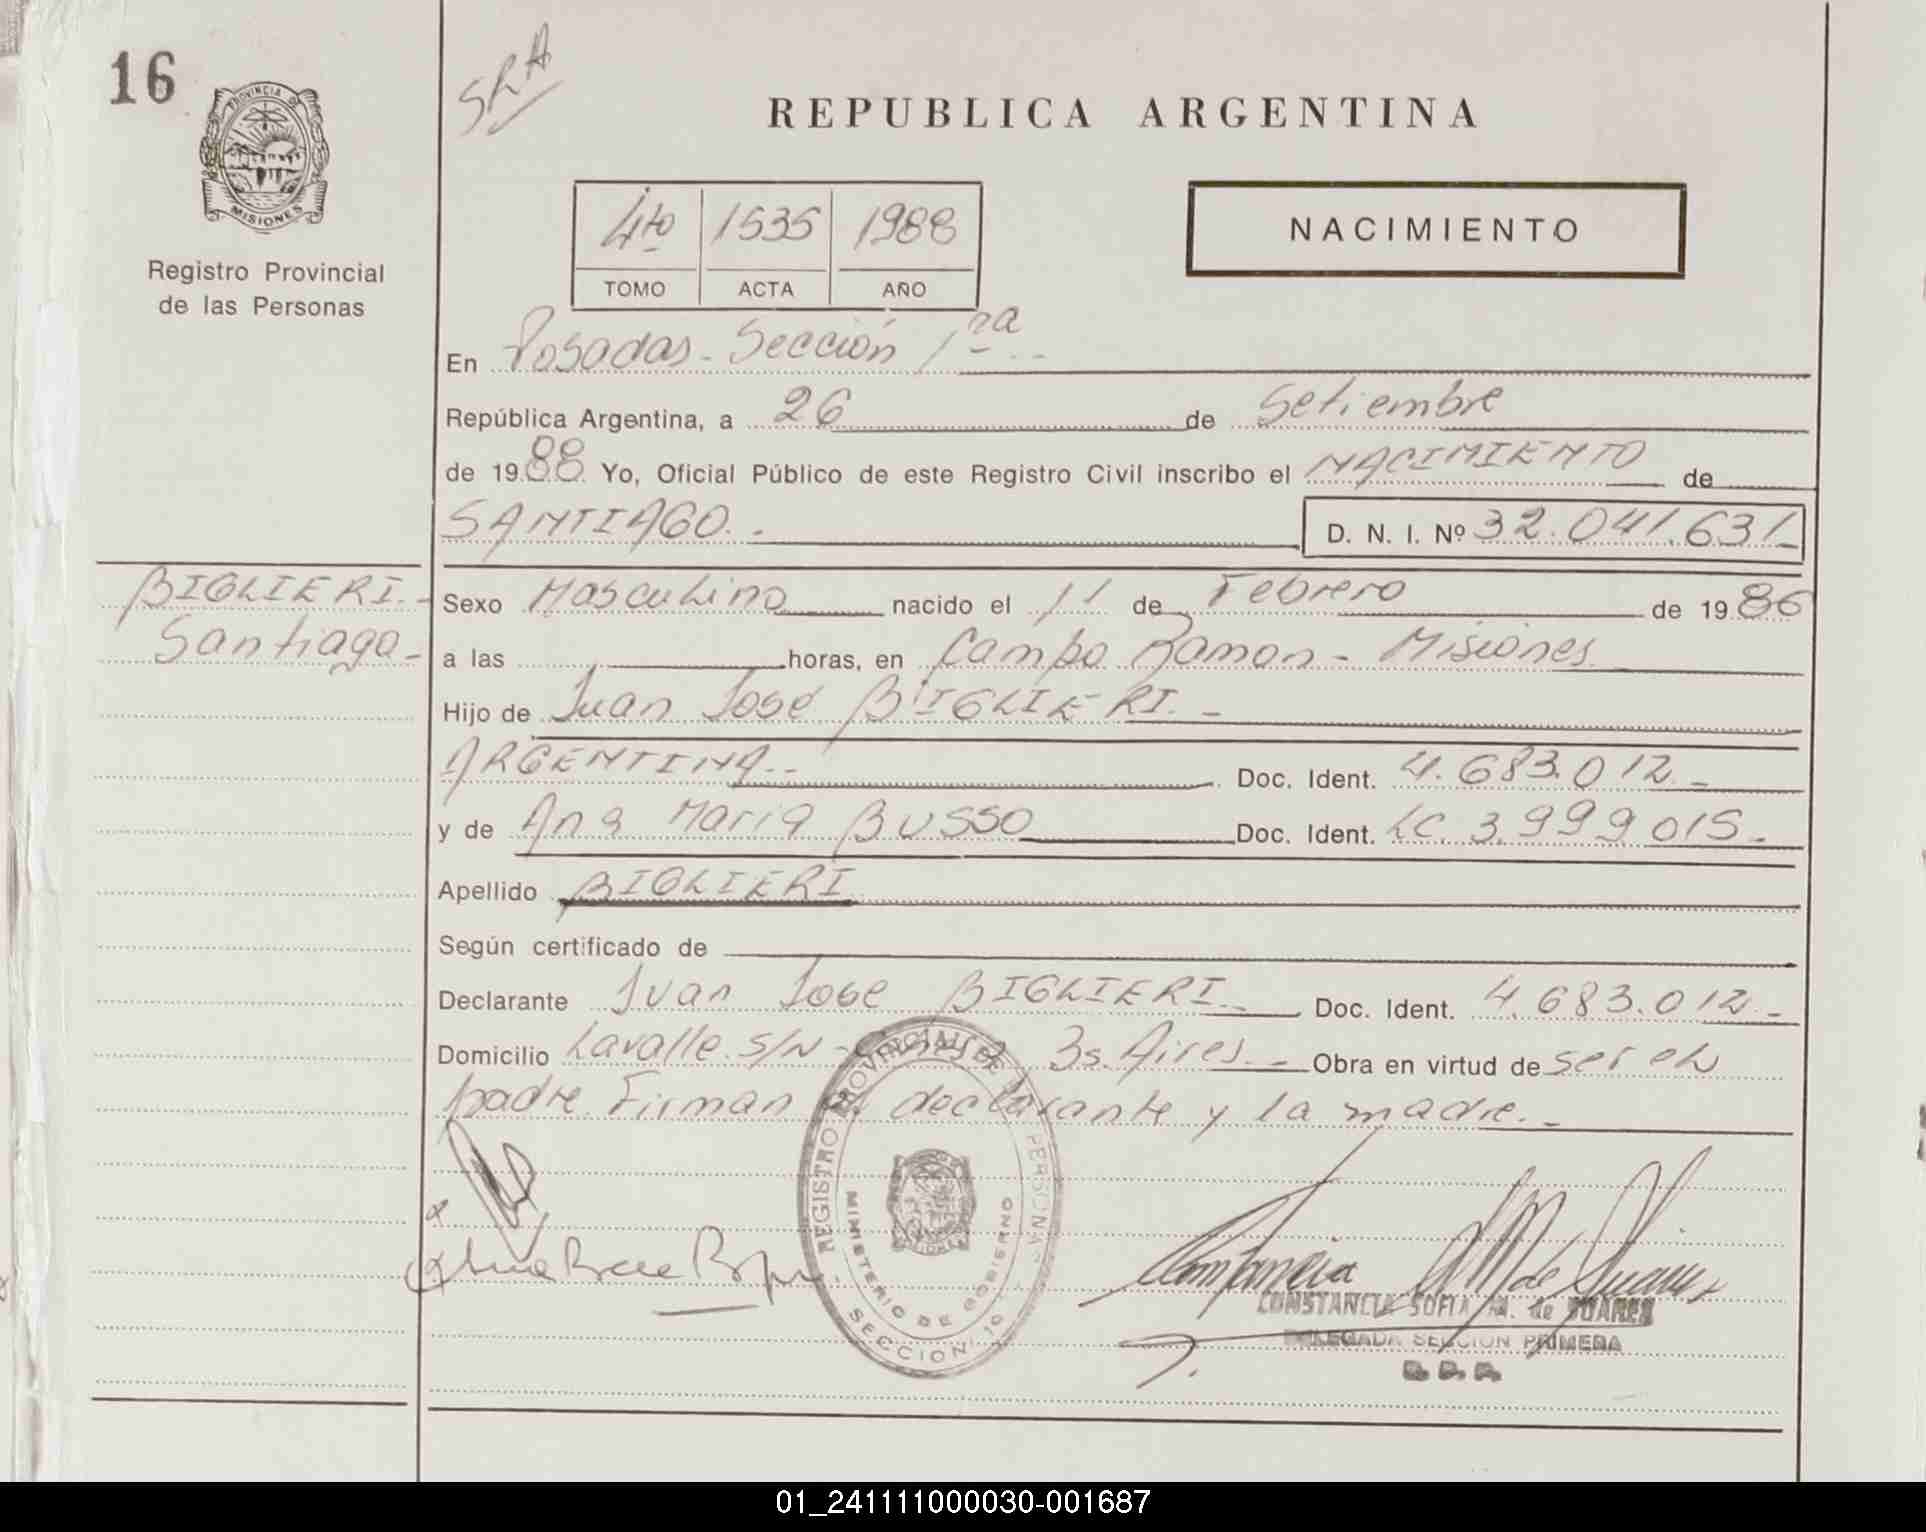 16
SRA
PROVINCIA DE
MISIONES
Registro Provincial
de las Personas
REPUBLICA ARGENTINA
4to 1535 1988
TOMO ACTA AÑO
NACIMIENTO
En Posadas - Sección 1ra
República Argentina, a 26 de Setiembre
de 1988 Yo, Oficial Público de este Registro Civil inscribo el NACIMIENTO de
SANTIAGO.-
D. N. I. Nº 32.041.631
BIGLIERI.-
Santiago-
Sexo Masculino nacido el 11 de Febrero de 1986
a las horas, en Campo Ramon - Misiones
Hijo de Juan José BIGLIERI.-
ARGENTINA.- Doc. Ident. 4.683.012.-
y de Ana Maria BUSSO Doc. Ident. LC. 3.999015.-
Apellido BIGLIERI
Según certificado de
Declarante Juan Jose BIGLIERI.- Doc. Ident. 4.683.012.-
Domicilio Lavalle s/N - Bs. Aires.- Obra en virtud de ser el
padre Firman el declarante y la madre.-
REGISTRO PROVINCIAL DE PERSONAS
MINISTERIO DE GOBIERNO
SECCION 10
CONSTANCIA SOFIA M. de SUAREZ
DELEGADA SECCION PRIMERA
R. P. P.
01_241111000030-001687